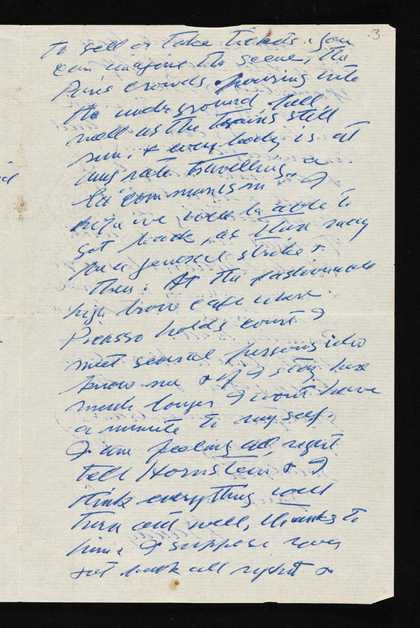 3
to sell or take tickets. You
can imagine the scene, the
Paris crowds pouring into
the underground, full
well as the trains still
run, & every body is at
any rate travelling a
la communism. I
hope we will be able to
get back, as there may
be a general strike &
then. At the fashionable
high brow cafe where
Picasso holds court I
meet several persons who
know me & if I stay here
much longer I wont have
a minute to myself.
I am feeling all right
tell Hornstein & I
think everything will
turn out well, thanks to
him. I suppose you
got back all right &